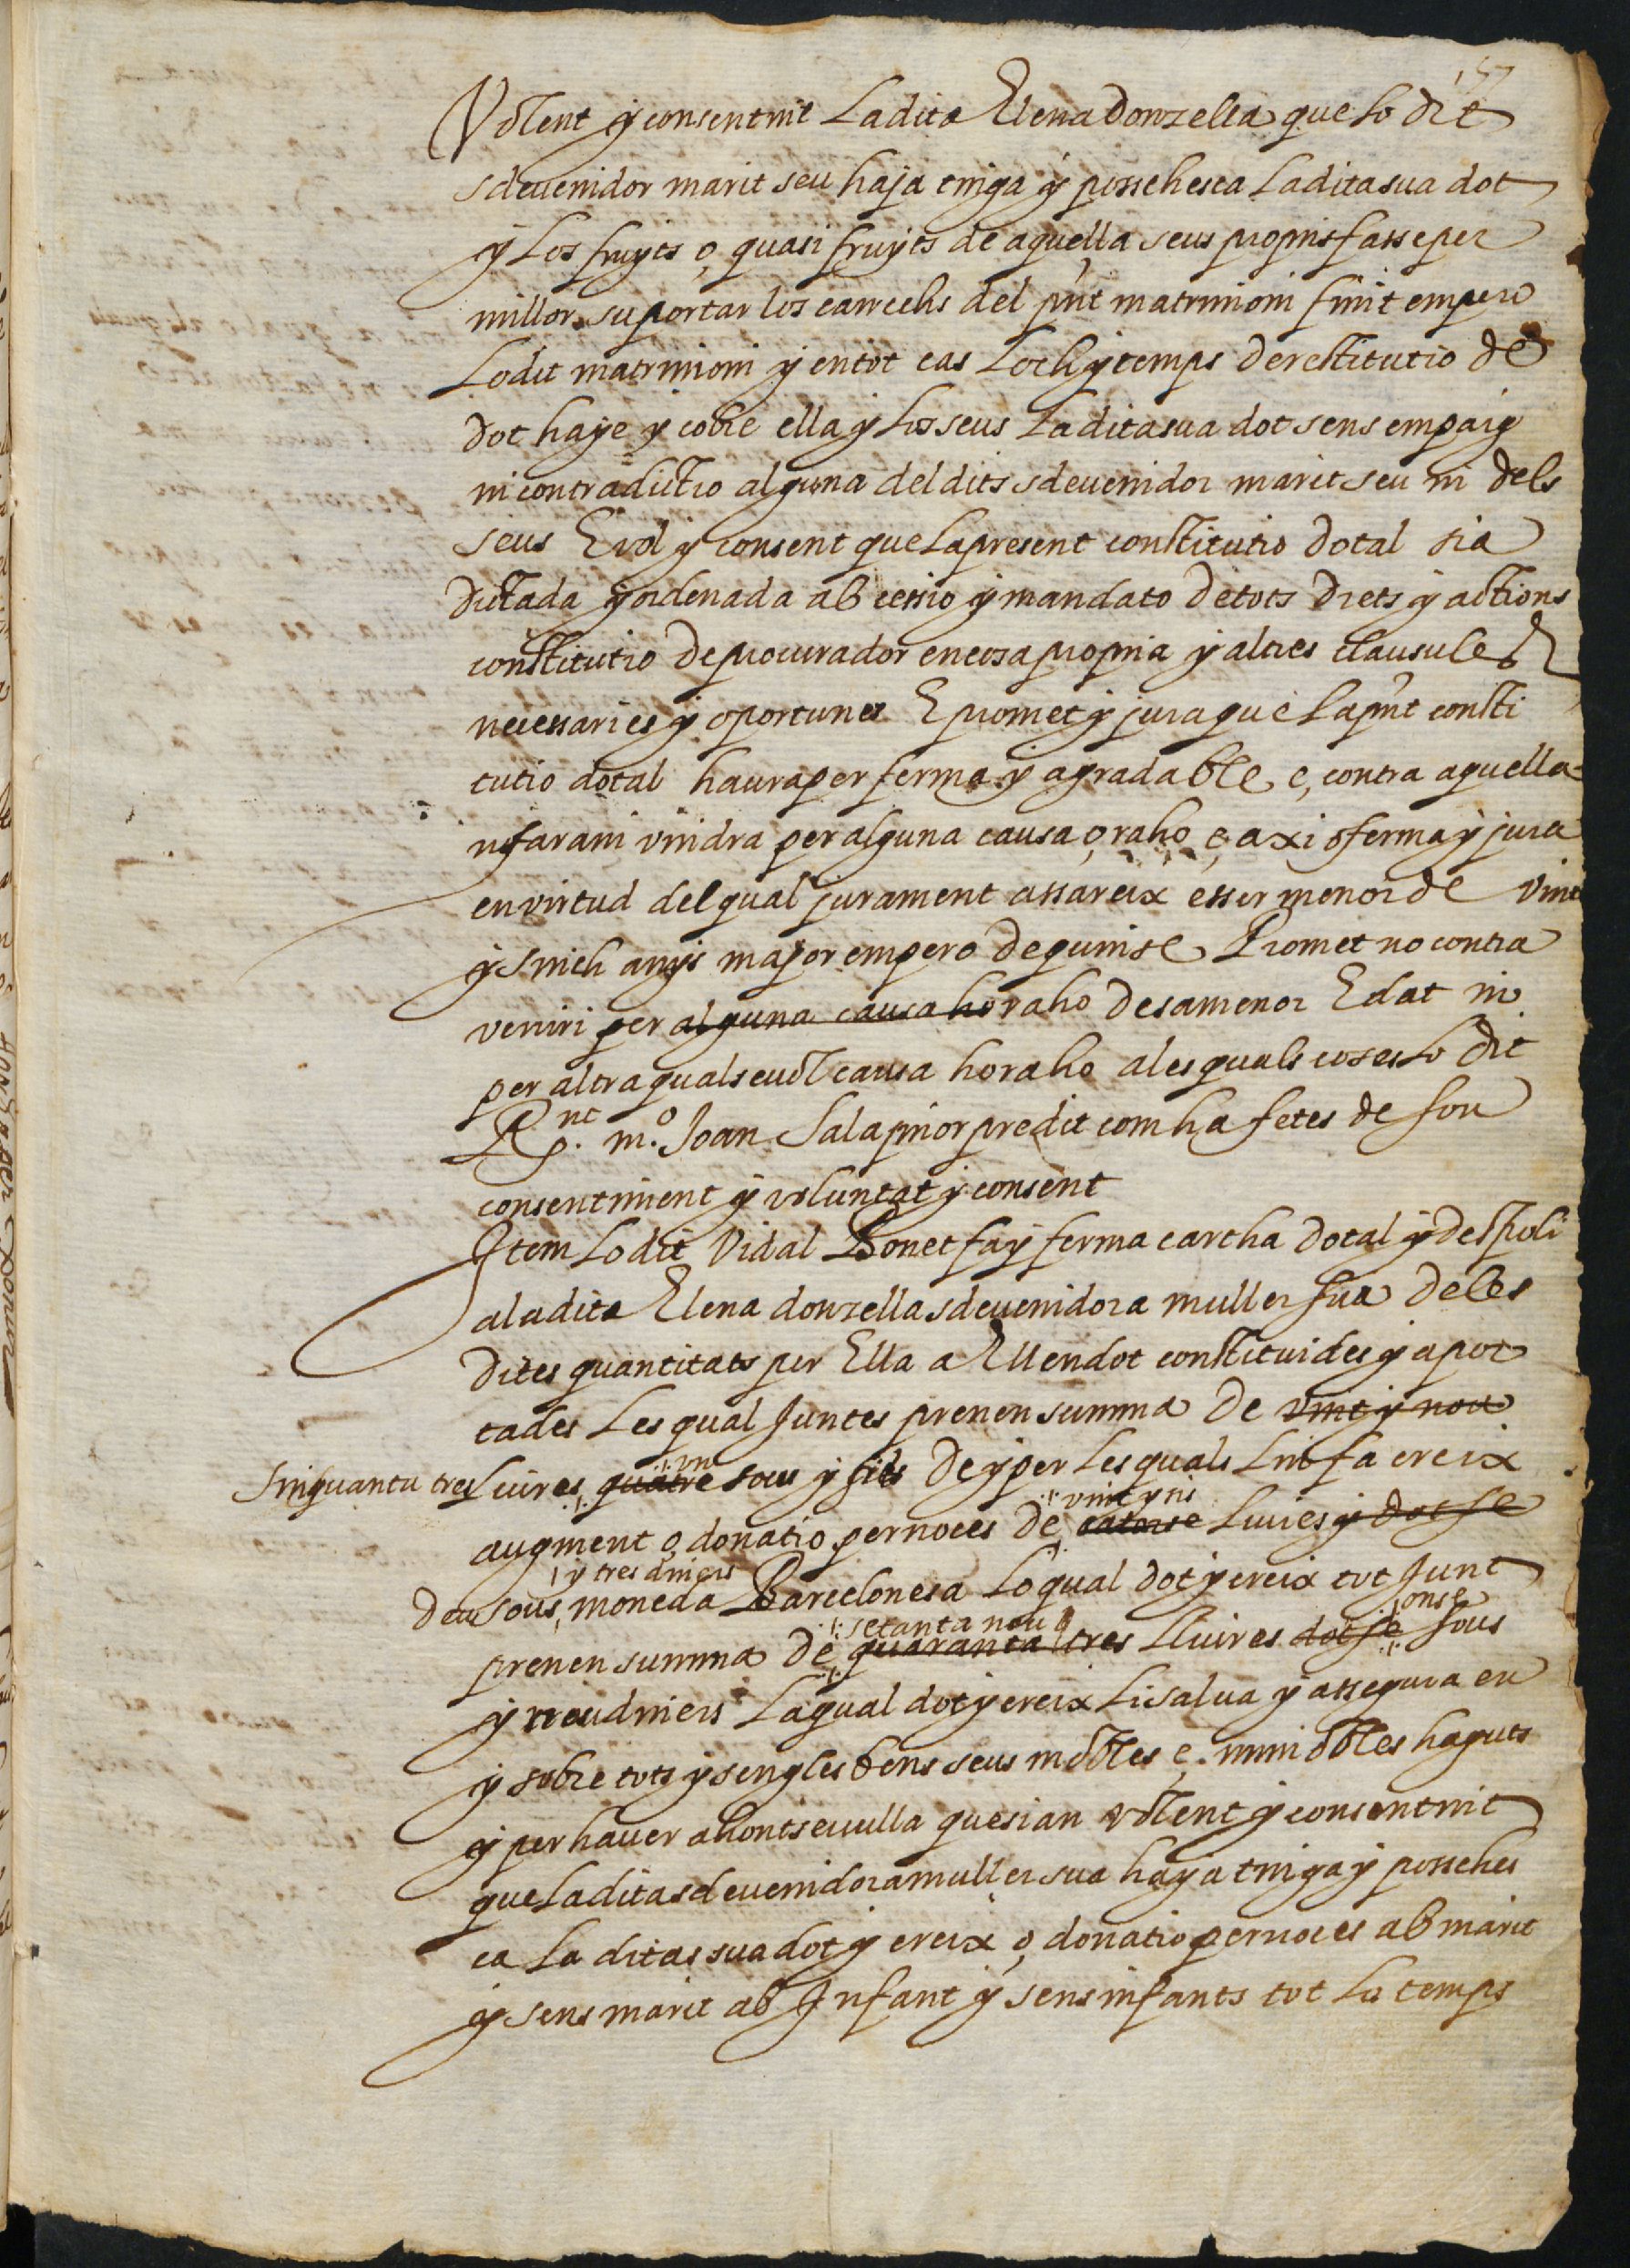 157
Volent y consentint La dita Elena donzella que lo dit
sdevenidor marit seu haja tinga y possehesca La dita sua dot
y Los fruyts o quasi fruyts de aquella seus propris fasse per
millor suportar los carrechs del pnt matrimoni finit empero
Lo dit matrimoni y en tot cas Loch y temps de restitutio de
dot haye y cobre ella y Los seus La dita sua dot sens empaig
ni contradictio alguna del dits sdevenidor marit seu ni dels
seus E vol y consent que La present constitutio dotal sia
dictada y ordenada ab cessio y mandato de tots drets y actions
constitutio de procurador en cosa propria y altres clausules
necessaries y oportunes E promet y jura que La pnt consti
tutio dotal haura per ferma y agradable e, contra aquella
no fara ni vindra per alguna causa o raho e axi o ferma y jura
en virtud del qual jurament assareix esser menor de vint
y sinch anys major empero de quinse Promet no contra
venir i per alguna causa ho raho de sa menor Edat ni
per altra qualsevol causa ho raho a les quals coses Lo dit
R.nt m.o Joan Sala prior predit com ha fetes de son
consentiment y voluntat y consent
Item Lo dit Vidal Bonet fa y ferma cartha dotal y despoli
a la dita Elena donzella sdevenidora muller sua de les
dites quantitats per Ella a Ell en dot constituides y apor
tades Les qual Juntes prenen summa de vint y nou
sinquanta tres Liures quatre un sous y sis de y per Les quals Lin fa creix
augment o, donatio per noces de catorse vint y sis Liures y dotse
deu sous y tres diners moneda Barcelonesa Lo qual dot y creix tot Junt
prenen summa de quaranta tres setanta nou Lliures dotse onse sous
y nou diners La qual dot y creix Li salva y assegura en
y sobre tots y sengles bens seus mobles e immobles haguts
y per haver ahont se vulla que sian volent y consentint
que La dita sdevenidora muller sua haja tinga y possehes
ca La ditas sua dot y creix o, donatio per noces ab marit
y sens marit ab Infant y sens infants tot Lo temps